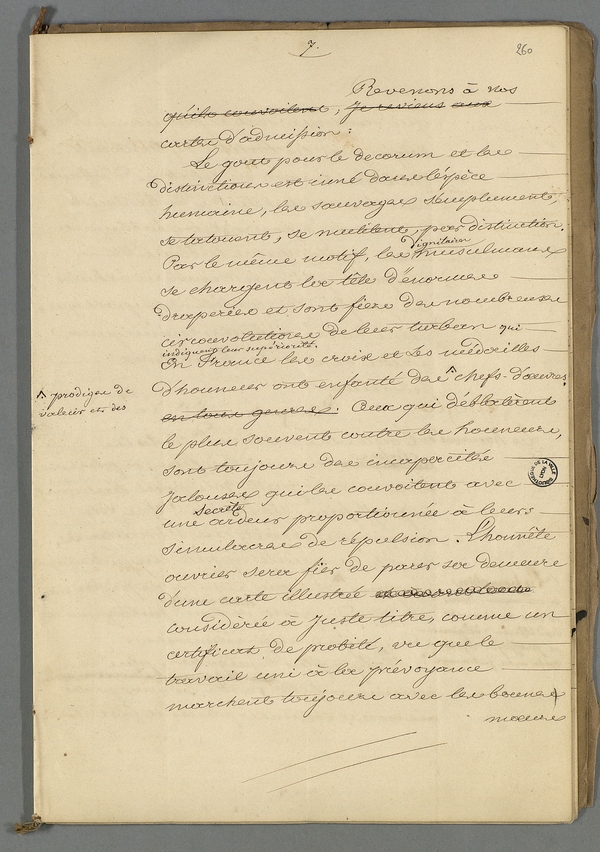 7.
260
Revenons à nos
qu'ils convoitent, je reviens aux
cartes d'admission :
Le gout pour le decorum et les
distinctions est inné dans l'espèce
humaine, les sauvages s'emplument,
se tatouent, se mutilent, par distinction.
dignitaires
Par le même motif, les musulmans
se chargent la tête d'énormes
draperies et sont fiers des nombreuses
circonvolutions de leur turban qui
indiquent leur supériorité.
En France les croix et les médailles
d'honneur ont enfanté des ^ chefs-d'œuvres
^ prodiges de
valeur et des
en tous genres. Ceux qui déblatèrent
le plus souvent contre les honneurs,
sont toujours des incapacités
jalouses qui les convoitent avec
secrète
une ardeur proportionnée à leurs
simulacres de répulsion. L'honnête
ouvrier sera fier de parer sa demeure
d'une carte illustrée
considérée à juste titre, comme un
certificat de probité, vu que le
travail uni à la prévoyance
marchent toujours avec les bonnes
mœurs
BIBLIOTHÈQUE DE LA VILLE
LYON